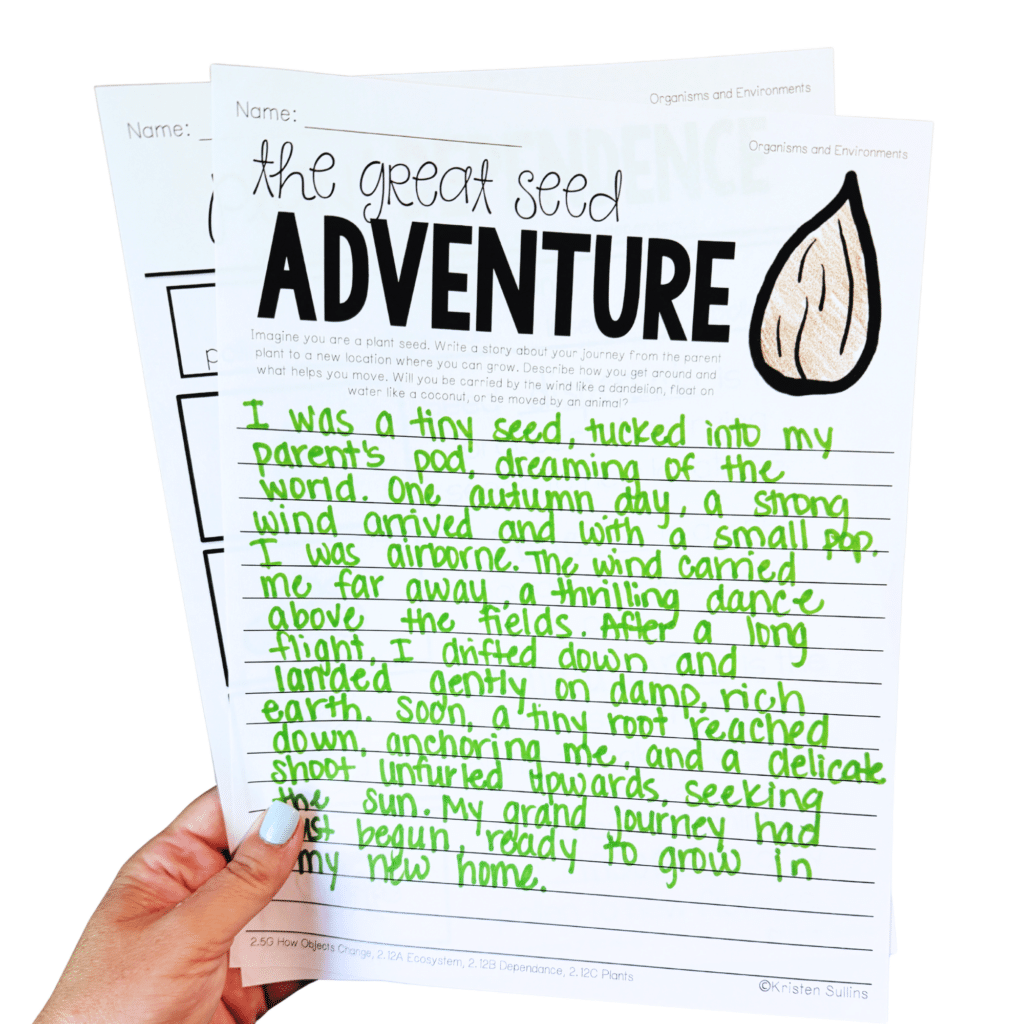 Name:
Organisms and Environments
Name:
Organisms and Environments
the great seed
ADVENTURE
Imagine you are a plant seed. Write a story about your journey from the parent
plant to a new location where you can grow. Describe how you get around and
what helps you move. Will you be carried by the wind like a dandelion, float on
water like a coconut, or be moved by an animal?
I was a tiny seed, tucked into my
parent's pod, dreaming of the
world. One autumn day, a strong
wind arrived and with a small pop,
I was airborne. The wind carried
me far away, a thrilling dance
above the fields. After a long
flight, I drifted down and
landed gently on damp, rich
earth. Soon, a tiny root reached
down, anchoring me, and a delicate
shoot unfurled upwards, seeking
the sun. My grand journey had
begun, ready to grow in
my new home.
2.5G How Objects Change, 2.12A Ecosystem, 2.12B Dependance, 2.12C Plants
©Kristen Sullins